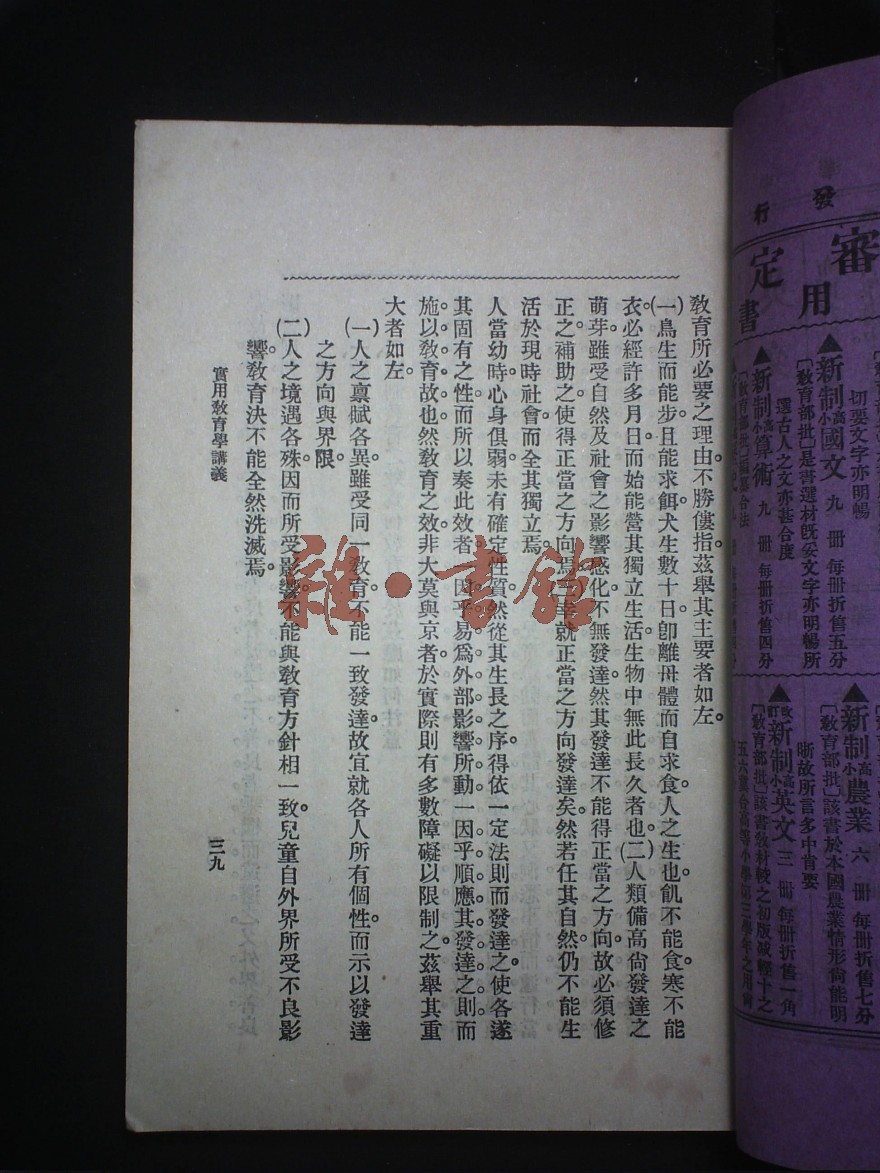 教育所必要之理由。不勝僂指。茲舉其主要者如左。
(一)鳥生而能步。且能求餌。犬生數十日。卽離母體而自求食。人之生也。飢不能食。寒不能
衣。必經許多月日。而始能營其獨立生活。生物中無此長久者也。(二)人類備高尙發達之
萌芽。雖受自然及社會之影響感化。不無發達。然其發達不能得正當之方向。故必須修
正之。補助之。使得正當之方向焉。
正當之方向發達矣。然若任其自然。仍不能生
活於現時社會。而全其獨立焉。
人當幼時。心身俱弱。未有確定性質。然從其生長之序。得依一定法則而發達之。使各遂
其固有之性。而所以奏此效者。一因乎易爲外部影響所動。一因乎順應其發達之則而
施以教育故也。然教育之效。非大莫與京者。於實際則有多數障礙以限制之。茲舉其重
大者如左。
(一)人之禀賦各異。雖受同一教育。不能一致發達。故宜就各人所有個性。而示以發達
之方向與界限。
(二)人之境遇各殊。因而所受影響。不能與教育方針相一致。兒童自外界所受不良影
響。教育決不能全然洗滅焉。
實用教育學講義
三九
雜·書館
發行
審定
用書
切要文字亦明暢
▲新制高小國文 九冊 每冊折舊五分
〔教育部批〕是書選材旣妥文字亦明暢所
選古人之文亦甚合度
▲新制高小算術 九冊 每冊折舊四分
▲新制高小農業 六冊 每冊折舊七分
〔教育部批〕該書於本國農業情形尙能明
晰故所言多中肯要
▲改訂新制高小英文 三冊 每冊折舊一角
〔教育部批〕該書教材較之初版減輕十之